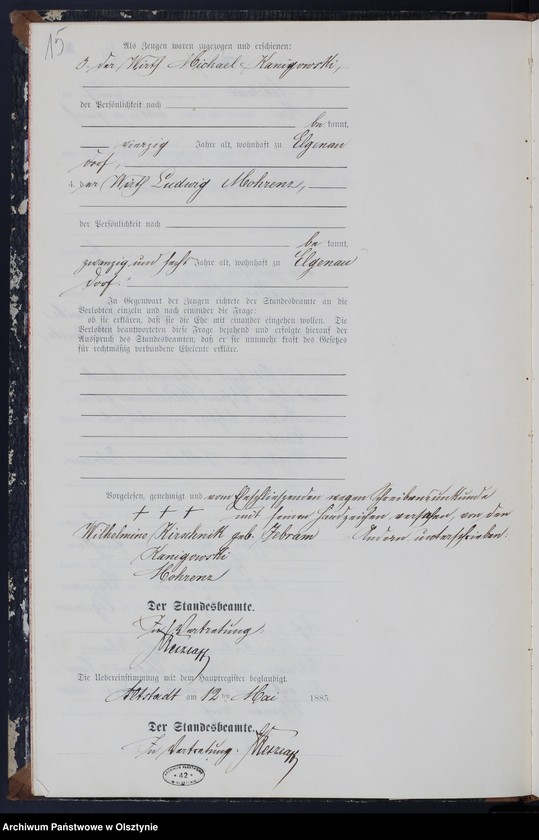 15
Als Zeugen waren zugezogen und erschienen:
3. der Wirth Michael Kanigowski,
der Persönlichkeit nach
be kannt,
vierzig Jahre alt, wohnhaft zu Elgenau
dorf,
4. der Wirth Ludwig Mohrenz,
der Persönlichkeit nach
be kannt,
zwanzig und sechs Jahre alt, wohnhaft zu Elgenau
dorf.
In Gegenwart der Zeugen richtete der Standesbeamte an die
Verlobten einzeln und nach einander die Frage:
ob sie erklären, daß sie die Ehe mit einander eingehen wollen. Die
Verlobten beantworteten diese Frage bejahend und erfolgte hierauf der
Ausspruch des Standesbeamten, daß er sie nunmehr kraft des Gesetzes
für rechtmäßig verbundene Eheleute erkläre.
Vorgelesen, genehmigt und vom Eheschließenden wegen Schreibensunkunde
+ + + mit seinem Handzeichen versehen, von den
Wilhelmine Kirschnik geb. Jebram Andern unterschrieben.
Kanigowski
Mohrenz
Der Standesbeamte.
In Vertretung
Die Uebereinstimmung mit dem Hauptregister beglaubigt.
Altstadt am 12 ten Mai 1885.
Der Standesbeamte.
In Vertretung.
42
Archiwum Państwowe w Olsztynie